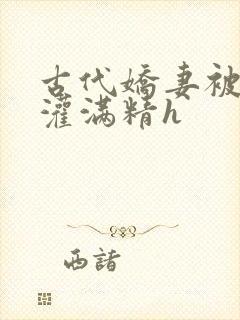 古代嬌妻被
灌滿精h
西諸